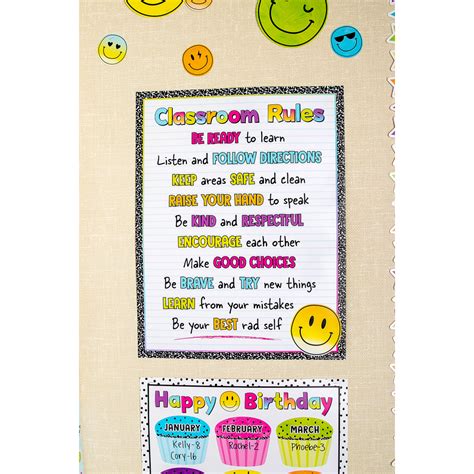 Classroom Rules
BE READY to learn
Listen and FOLLOW DIRECTIONS
KEEP areas SAFE and clean
RAISE YOUR HAND to speak
Be KIND and RESPECTFUL
ENCOURAGE each other
Make GOOD CHOICES
Be BRAVE and TRY new things
LEARN from your mistakes
Be your BEST rad self
Happy Birthday
JANUARY
Kelly-8
Cory-16
FEBRUARY
Rachel-2
MARCH
Phoebe-3